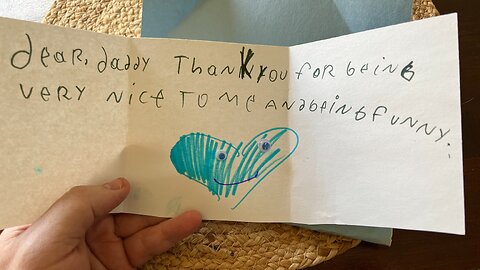 dear, daddy ThanKYou foR beinG
veRy nice To me AndbeingfunnY.